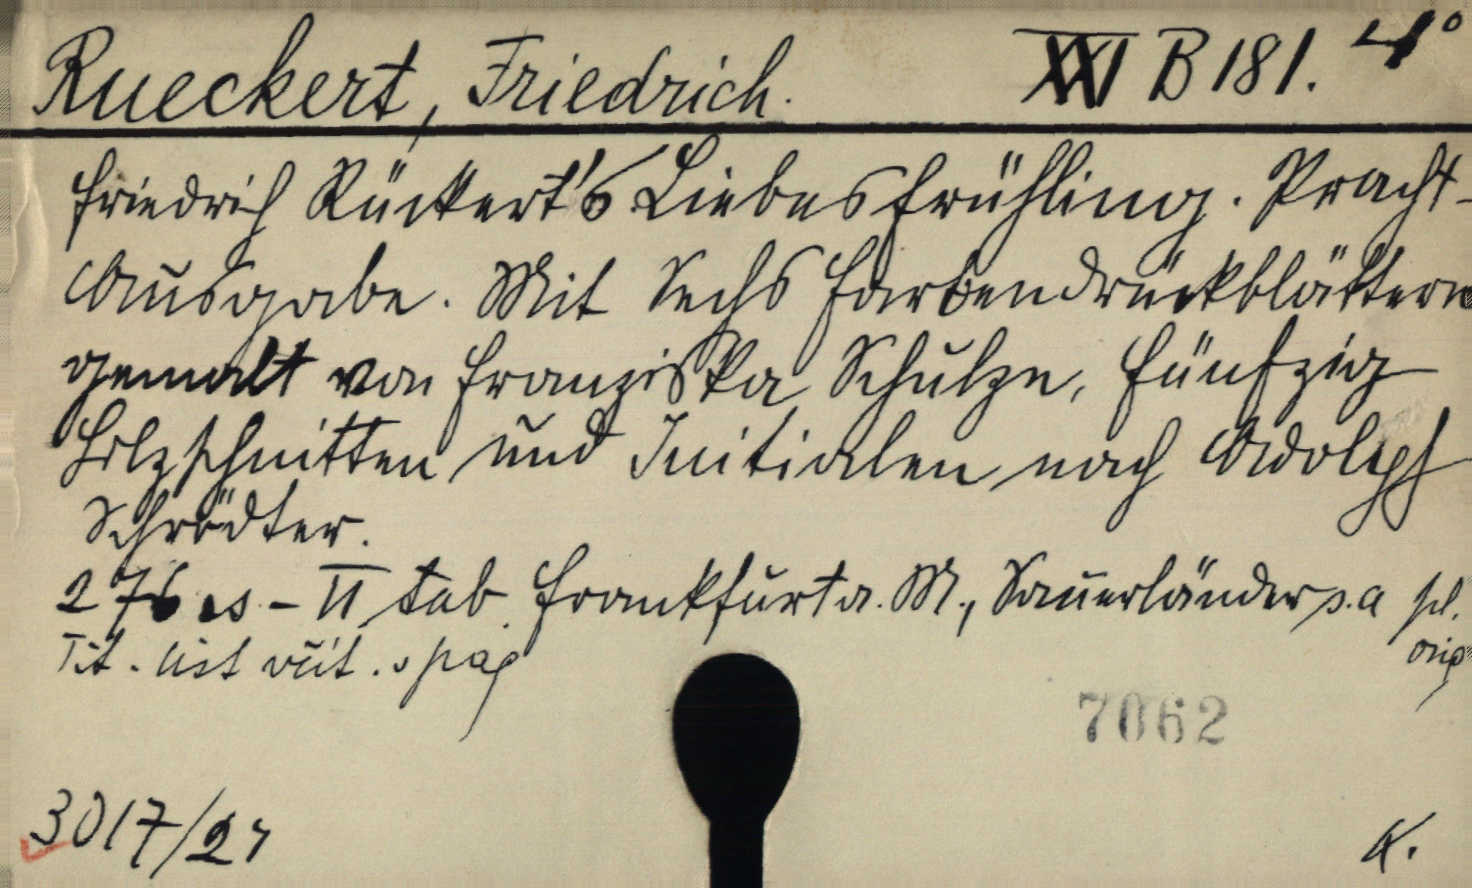 Rueckert, Friedrich. XXI B 181. 4°
Friedrich Rückert's Liebesfrühling. Pracht-
Ausgabe. Mit Sechs Farbendruckblättern
gemalt von Franziska Schulze, fünfzig
Holzschnitten und Initialen nach Adolph
Schrödter.
276 s - II tab. Frankfurt a. M., Sauerländer s. a
Tit. pag
orig
7062
3017/27
K.